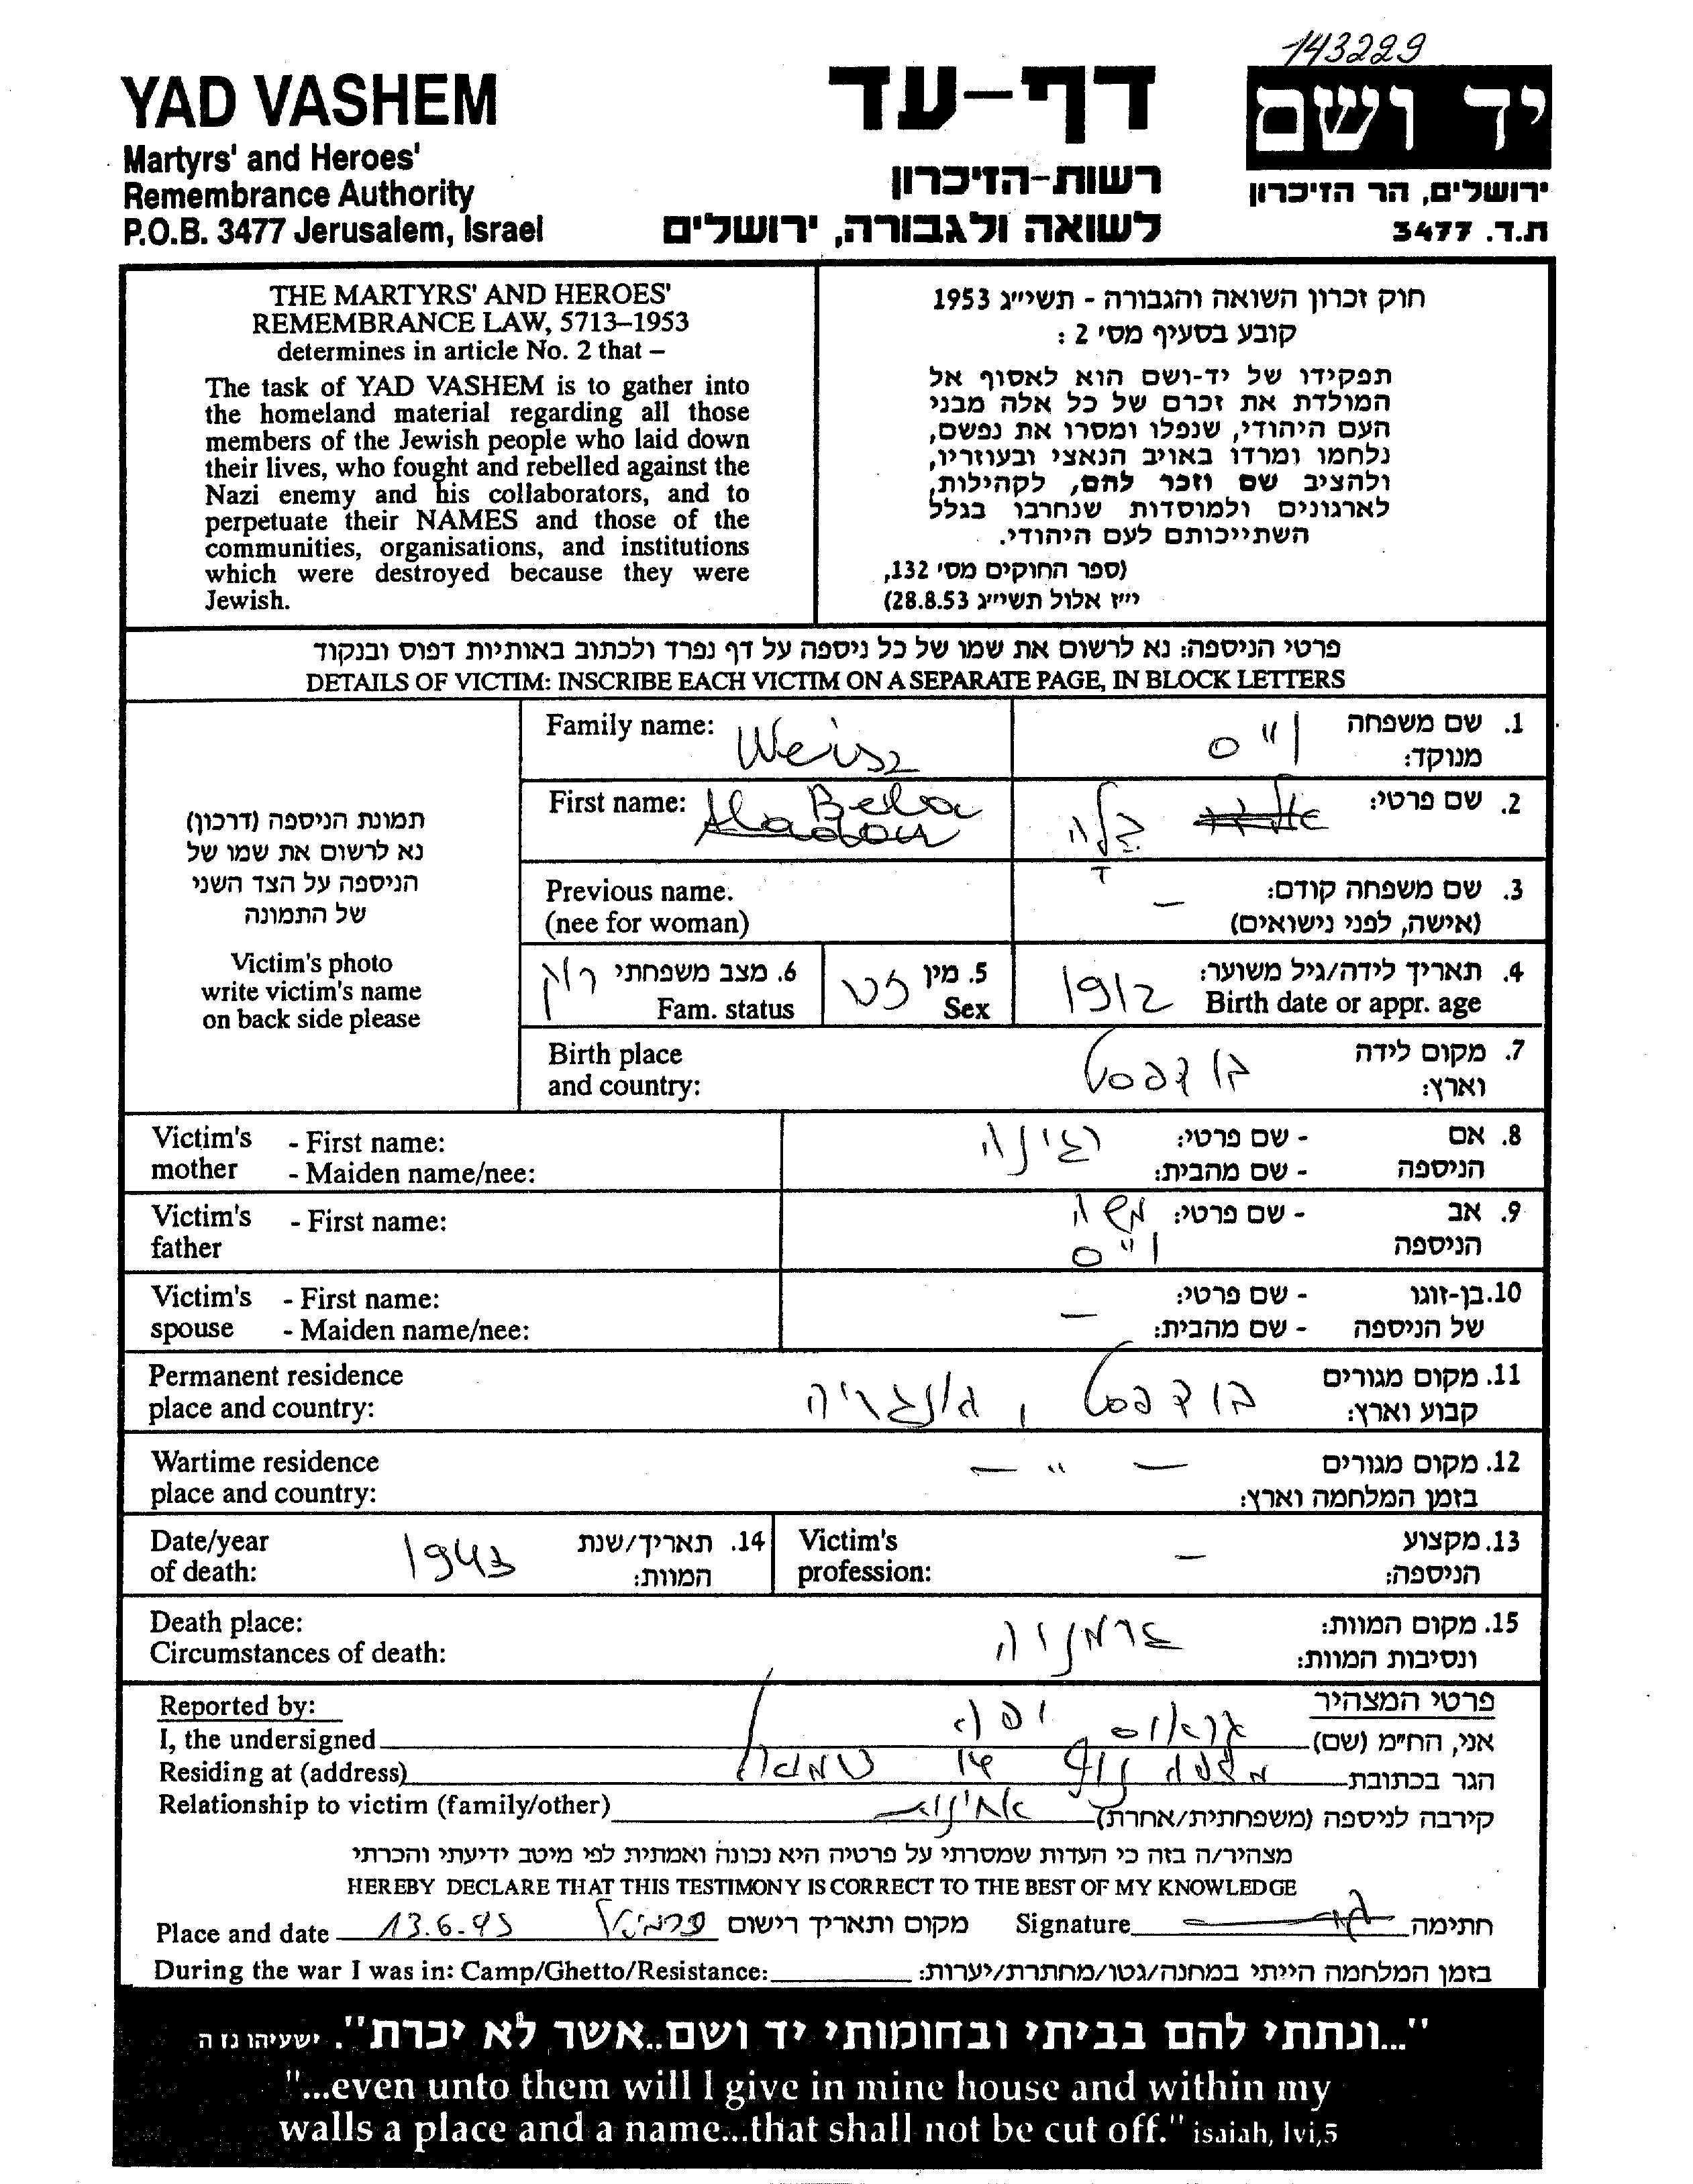 143229
YAD VASHEM
Martyrs' and Heroes'
Remembrance Authority
P.O.B. 3477 Jerusalem, Israel
דף-עד
רשות-הזיכרון
לשואה ולגבורה, ירושלים
יד ושם
ירושלים, הר הזיכרון
ת.ד. 3477
THE MARTYRS' AND HEROES'
REMEMBRANCE LAW, 5713–1953
determines in article No. 2 that –
The task of YAD VASHEM is to gather into
the homeland material regarding all those
members of the Jewish people who laid down
their lives, who fought and rebelled against the
Nazi enemy and his collaborators, and to
perpetuate their NAMES and those of the
communities, organisations, and institutions
which were destroyed because they were
Jewish.
חוק זכרון השואה והגבורה - תשי״ג 1953
קובע בסעיף מס׳ 2 :
תפקידו של יד-ושם הוא לאסוף אל
המולדת את זכרם של כל אלה מבני
העם היהודי, שנפלו ומסרו את נפשם,
נלחמו ומרדו באויב הנאצי ובעוזריו,
ולהציב שם וזכר להם, לקהילות,
לארגונים ולמוסדות שנחרבו בגלל
השתייכותם לעם היהודי.
(ספר החוקים מס׳ 132,
י״ז אלול תשי״ג 28.8.53)
פרטי הניספה: נא לרשום את שמו של כל ניספה על דף נפרד ולכתוב באותיות דפוס ובנקוד
DETAILS OF VICTIM: INSCRIBE EACH VICTIM ON A SEPARATE PAGE, IN BLOCK LETTERS
תמונת הניספה (דרכון)
נא לרשום את שמו של
הניספה על הצד השני
של התמונה
Victim's photo
write victim's name
on back side please
Family name: Weisz
1. שם משפחה
מנוקד: וייס
First name: Bela
2. שם פרטי: בלה
Previous name.
(nee for woman)
3. שם משפחה קודם: –
(אישה, לפני נישואים)
4. תאריך לידה/גיל משוער:
Birth date or appr. age 1912
5. מין
Sex
6. מצב משפחתי רווק
Fam. status
Birth place
and country:
7. מקום לידה
וארץ: בודפסט
Victim's mother - First name:
- Maiden name/nee:
8. אם הניספה - שם פרטי: רגינה
- שם מהבית:
Victim's father - First name:
9. אב הניספה - שם פרטי: משה
וייס
Victim's spouse - First name:
- Maiden name/nee:
10. בן-זוגו של הניספה - שם פרטי: –
- שם מהבית:
Permanent residence
place and country:
11. מקום מגורים
קבוע וארץ: בודפסט, הונגריה
Wartime residence
place and country:
12. מקום מגורים – " –
בזמן המלחמה וארץ:
Date/year
of death: 1943
14. תאריך/שנת
המוות:
Victim's
profession: –
13. מקצוע
הניספה:
Death place:
Circumstances of death:
15. מקום המוות: גרמניה
ונסיבות המוות:
Reported by:
פרטי המצהיר
I, the undersigned
אני, הח״מ (שם) יפה
Residing at (address)
הגר בכתובת
Relationship to victim (family/other)
קירבה לניספה (משפחתית/אחרת)
מצהיר/ה בזה כי העדות שמסרתי על פרטיה היא נכונה ואמתית לפי מיטב ידיעתי והכרתי
HEREBY DECLARE THAT THIS TESTIMONY IS CORRECT TO THE BEST OF MY KNOWLEDGE
Place and date 13.6.95 כרמיאל מקום ותאריך רישום Signature חתימה
During the war I was in: Camp/Ghetto/Resistance:
בזמן המלחמה הייתי במחנה/גטו/מחתרת/יערות:
"...ונתתי להם בביתי ובחומותי יד ושם..אשר לא יכרת". ישעיהו נו ה
"...even unto them will I give in mine house and within my
walls a place and a name...that shall not be cut off." isaiah, lvi,5